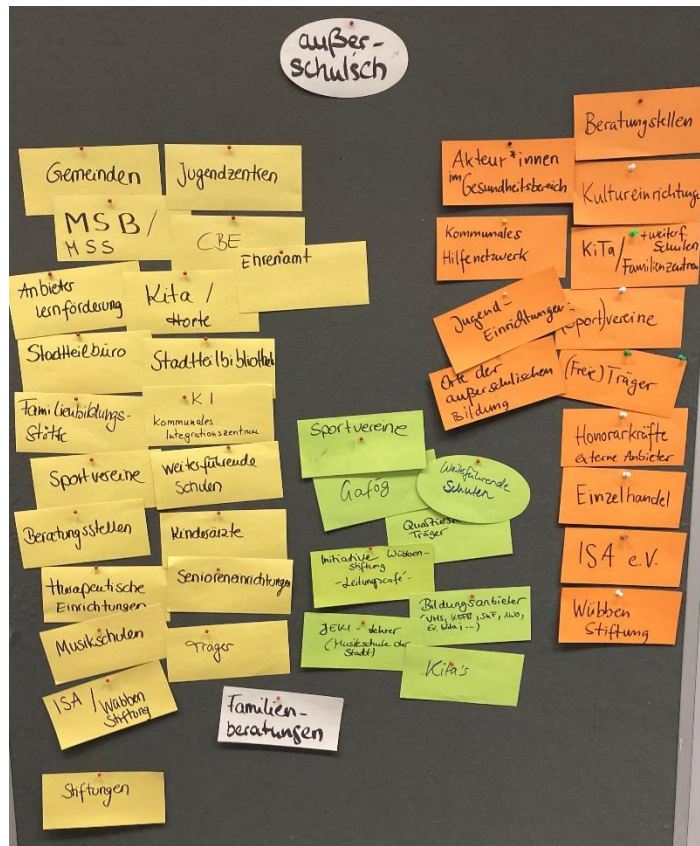 außer-
schulisch
Gemeinden
Jugendzentren
MSB/
MSS
CBE
Ehrenamt
Anbieter
Lernförderung
Kita /
Horte
Stadtteilbüro
Stadtteilbibliothek
Familienbildungs-
Stätte
KI
Kommunales
Integrationszentrum
Sportvereine
weiterführende
Schulen
Beratungsstellen
Kinderärzte
therapeutische
Einrichtungen
Senioreneinrichtungen
Musikschulen
Träger
ISA / Wübben
Stiftung
Familien-
beratungen
Stiftungen
Sportvereine
Gafög
Weiterführende
Schulen
Quartiers
Träger
Initiative Wübben-
stiftung
-Leitungscafé-
JEKI - Lehrer
(Musikschule der
Stadt)
Bildungsanbieter
(VHS, KEFB, AWO,
...)
Kita's
Akteur*innen
im Gesundheitsbereich
Beratungstellen
Kultureinrichtunge
Kommunales
Hilfenetzwerk
KiTa/ + weiterf. Schulen
Familienzentren
Jugend-
Einrichtungen
(Sport)vereine
Orte der
außerschulischen
Bildung
(Freie) Träger
Honorarkräfte
externe Anbieter
Einzelhandel
ISA e.V.
Wübben
Stiftung